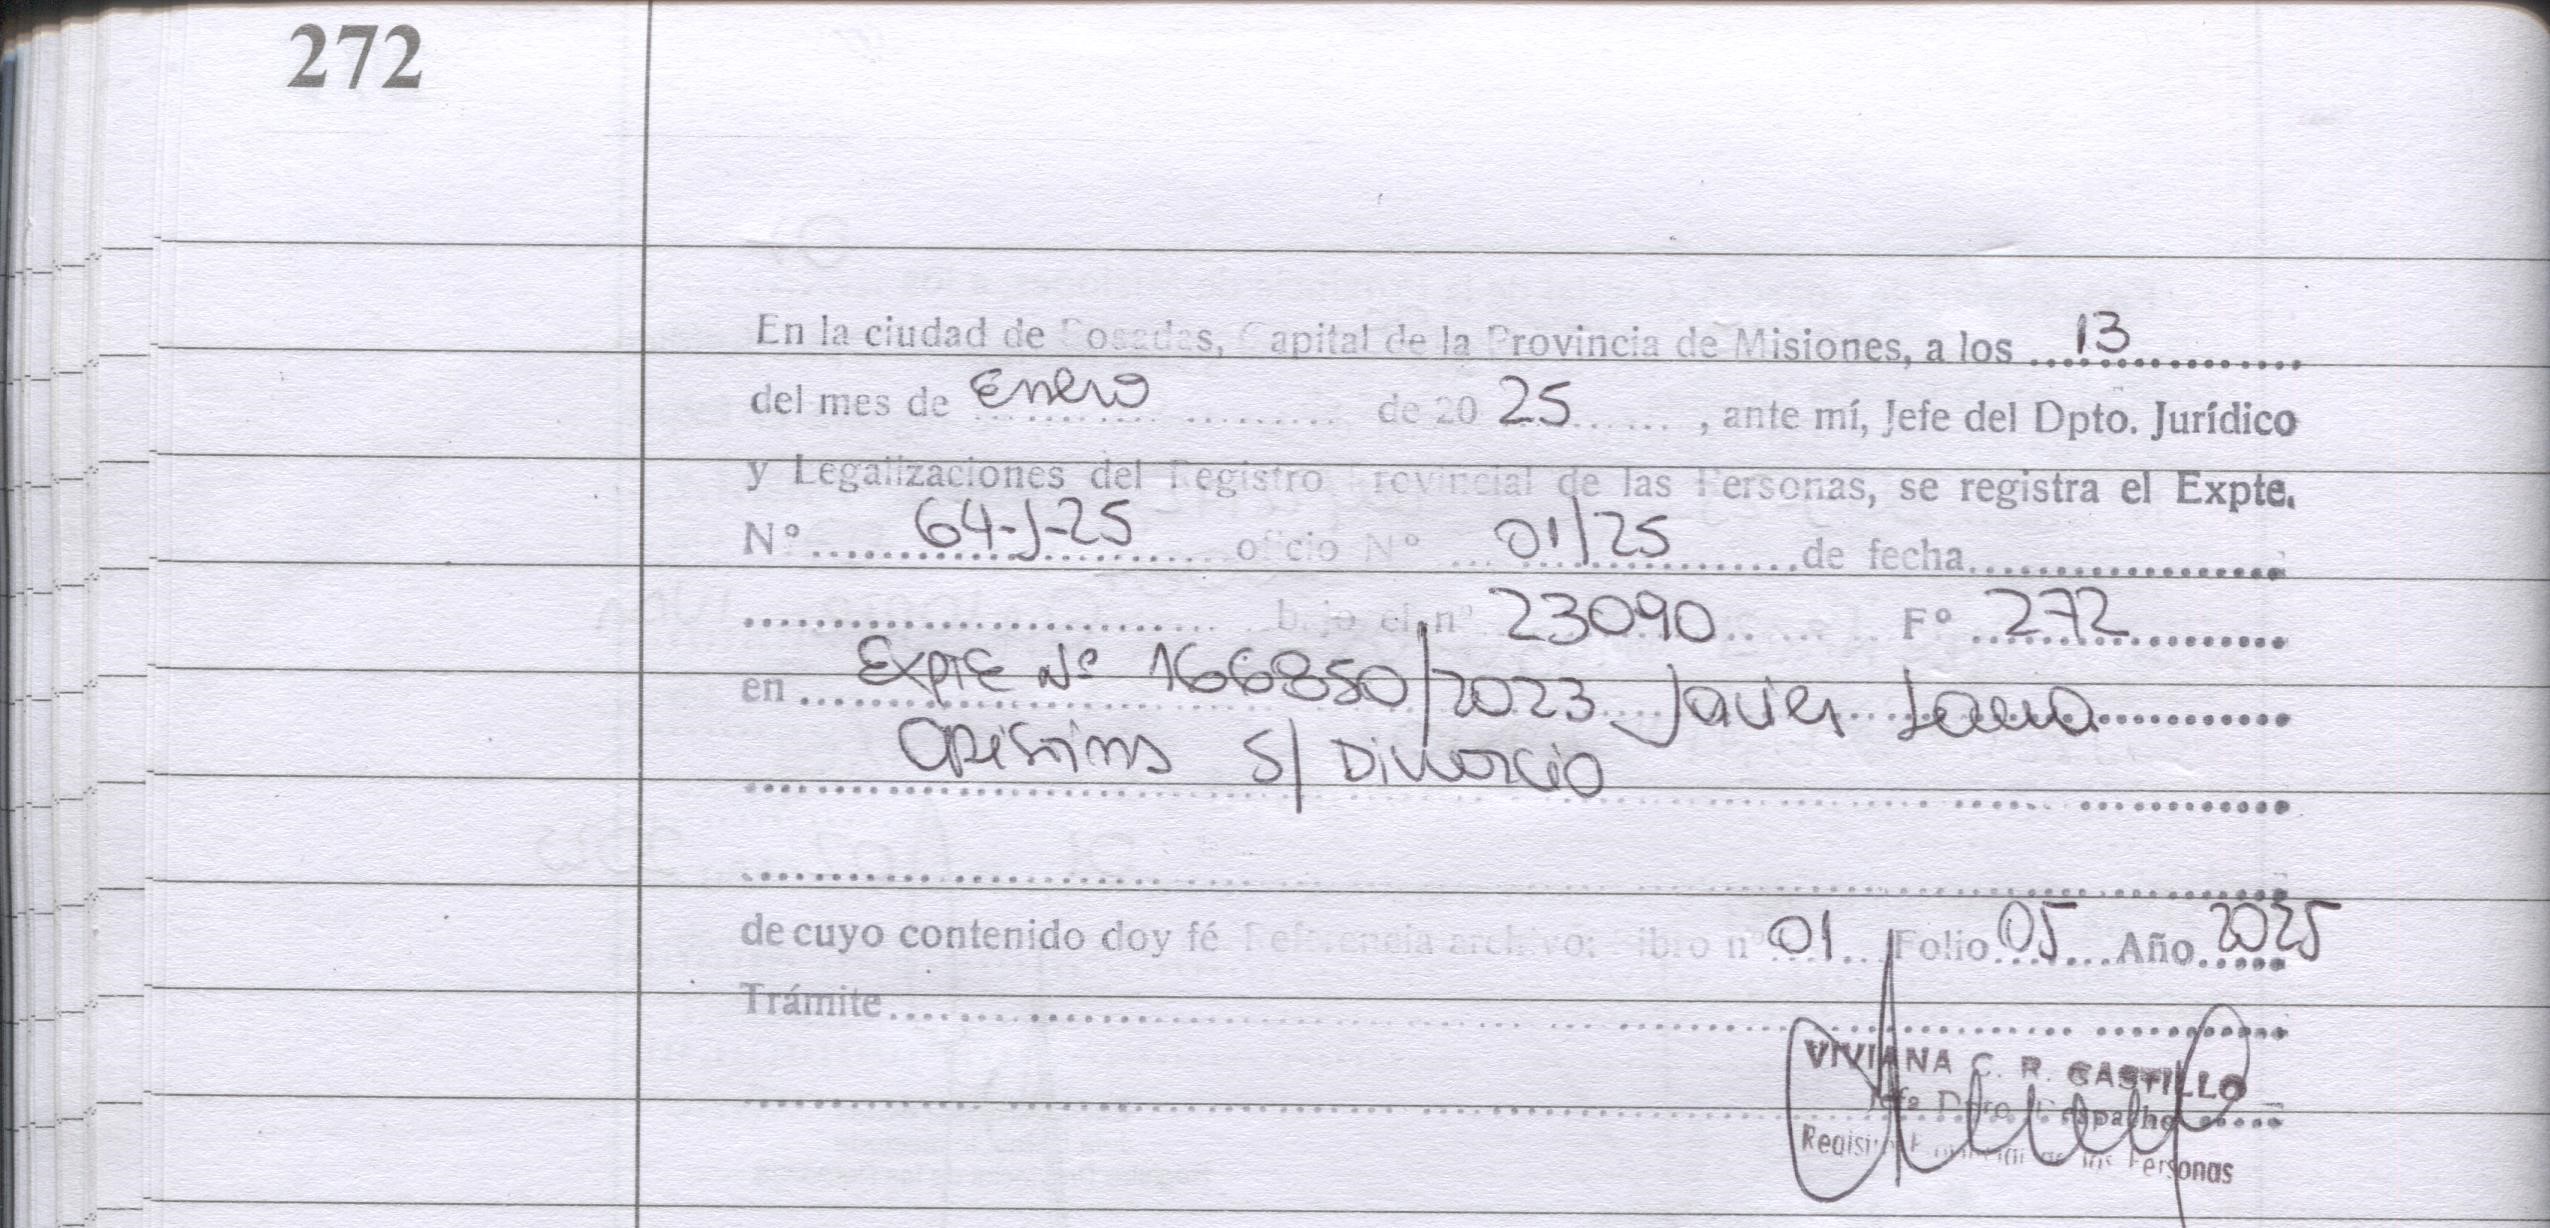 272
En la ciudad de Posadas, Capital de la Provincia de Misiones, a los 13
del mes de Enero de 2025, ante mí, Jefe del Dpto. Jurídico
y Legalizaciones del Registro Provincial de las Personas, se registra el Expte.
Nº 64-J-25 oficio Nº 01/25 de fecha
bajo el nº 23090 Fº 272
en Expte Nº 166850/2023 Javier
S/ Divorcio
de cuyo contenido doy fé Referencia archivo: Libro nº 01 Folio 05 Año 2025
Trámite
VIVIANA C. R. CASTILLO
Jefa Dpto. Despacho
Registro Provincial de las Personas